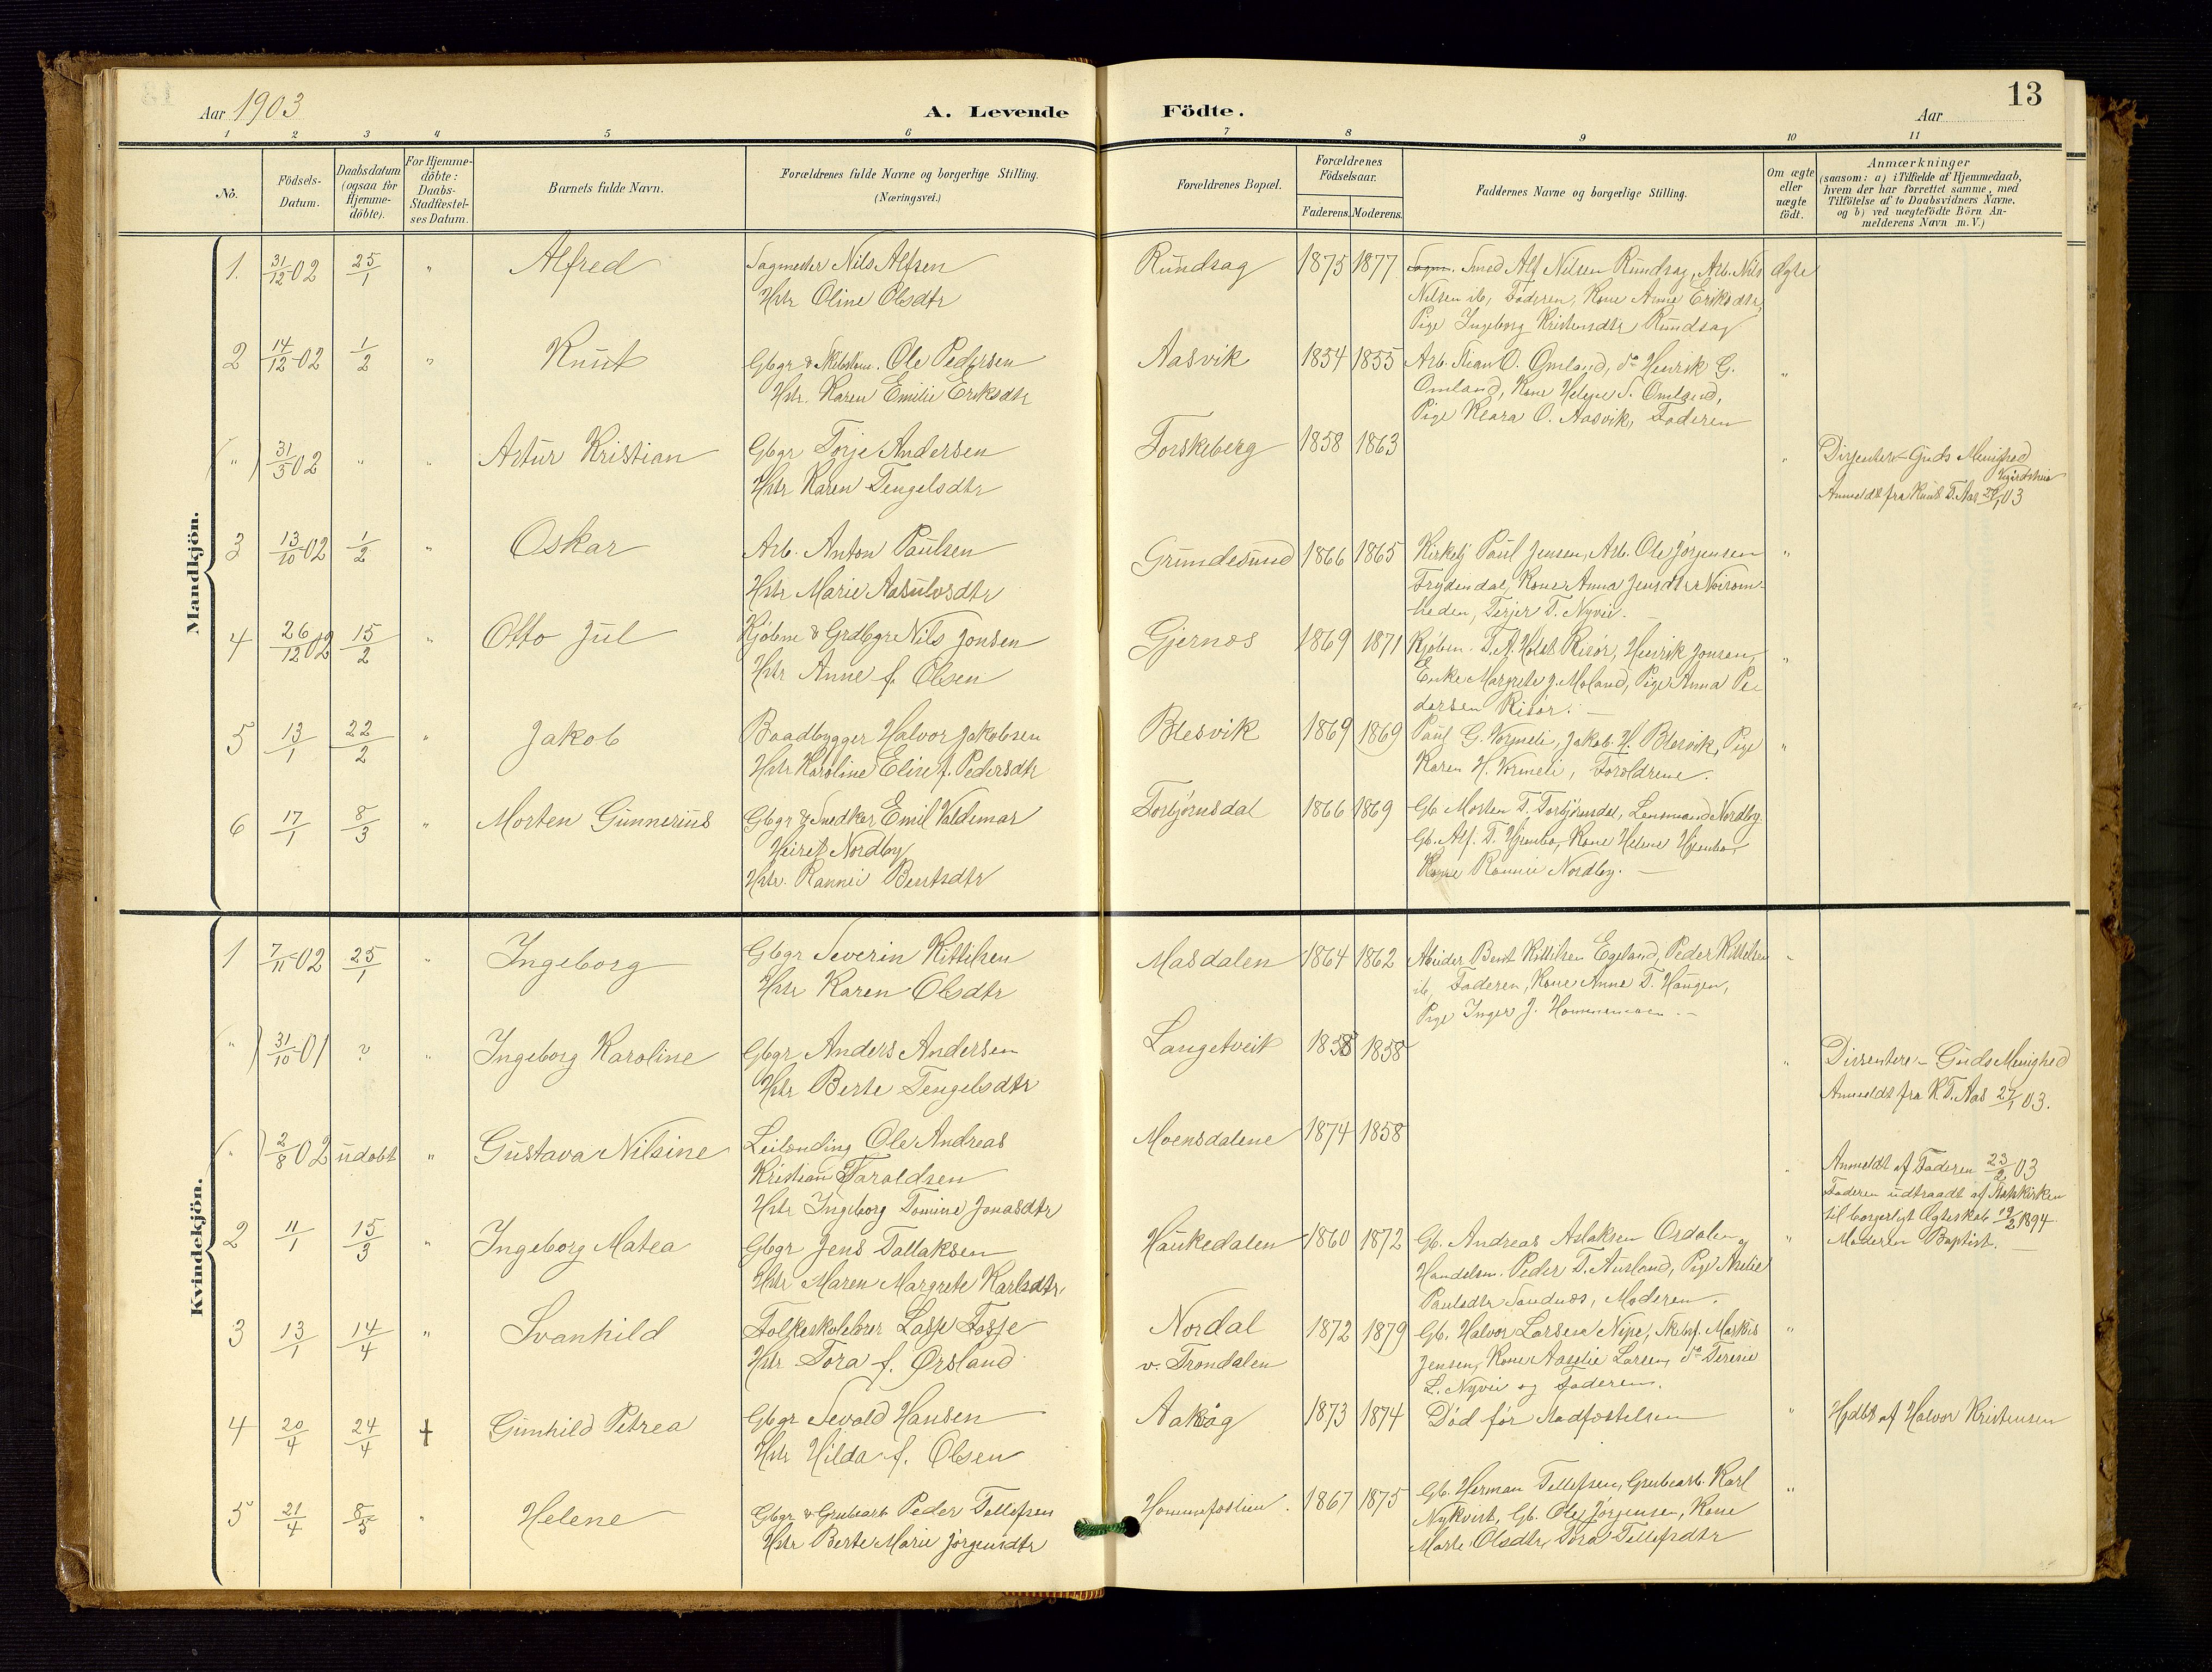 Aar 1903
A. Levende
Födte.
Aar
13
1 2 3 4 5 6 7 8 9 10 11
No.
Födsels-
Datum.
Daabsdatum
(ogsaa for
Hjemme-
döbte).
For Hjemme-
döbte:
Daabs-
Stadfæstel-
ses Datum.
Barnets fulde Navn.
Forældrenes fulde Navne og borgerlige Stilling.
(Næringsvei.)
Forældrenes Bopæl.
Forældrenes
Födselsaar.
Faderens. Moderens.
Faddernes Navne og borgerlige Stilling.
Om ægte
eller
uægte
födt.
Anmærkninger
(saasom: a) i Tilfælde af Hjemmedaab,
hvem der har forrettet samme, med
Tilföielse af to Daabsvidners Navne.
og b) ved uægtefödte Börn An-
melderens Navn m.V.)
Mandkjön.
1. 31/12 02 25/1 " Alfred
Sagmester Nils Alfsen
Hstr Oline Olsdtr
Rundsag 1875 1877
Smed Alf Nilsen Rundsag, Arb. Nils
Nilsen ib, Faderen, Kone Anne Eriksdtr,
Pige Ingeborg Kristensdtr Rundsag
Ægte
2 14/12 02 1/2 " Knut
Gbgr & Skibstøm. Ole Pedersen
Hstr. Karen Emilie Eriksdtr
Aasvik 1854 1855
Arb. Stian O. Omland, do Henrik G.
Omland, Kone Helene S. Omland,
Pige Klara O. Aasvik, Faderen
"
(") 31/5 02 " " Artur Kristian
Gbgr Torje Andersen
Hstr Karen Tengelsdtr
Torskeberg 1858 1863
"
Dissentere - Guds Menighed
Anmeldt fra Knut T. Aas 27/1 03
3 13/10 02 1/2 " Oskar
Arb. Anton Paulsen
Hstr Marie Aasulvsdtr
Grundesund 1866 1865
Kirketj Paul Jensen, Arb. Ole Jørgensen
Frydendal, Kone Anna Jensdtr
heden, Terjer T. Nyvei.
"
4 26/12 02 15/2 " Otto Jul
Kjøbm & Grdbgr Nils Jonsen
Hstr Anne f. Olsen
Gjernes 1869 1871
Kjøbm. T. A. Holst Risør, Henrik Jonsen,
Enke Margrete J. Moland, Pige Anna Pe
dersen Risør.
"
5 13/1 22/2 " Jakob
Baadbygger Halvor Jakobsen
Hstr Karoline Elise f. Pedersdtr
Blesvik 1869 1869
Paul G. Vormeli, Jakob H. Blesvik, Pige
Karen H. Vormeli, Forældrene.
"
6 17/1 8/3 " Morten Gunnerius
Gbgr & Snedker Emil Valdemar
Nordby
Hstr. Rannei Berntsdtr
Torbjørnsdal 1866 1869
Gb Morten T. Torbjørnsdal, Lensmand Nordby
Gb. Alf. T. Hjembo, Kone Helene Hjembo,
Kone Rannei Nordby.
Kvindekjön.
1 7/11 02 25/1 " Ingeborg
Gbgr Severin Kittilsen
Hstr Karen Olsdtr
Masdalen 1864 1862
Arbeider Bent Kittilsen Egeland, Peder Kittilsen
ib, Faderen, Kone Anne T. Haugen,
Pige Inger J. Hommemoen.
"
" ) 31/10 01 ? " Ingeborg Karoline
Gbgr Anders Andersen
Hstr Berte Tengelsdtr
Langetveit 1858 1858
"
Dissentere - Guds Menighed
Anmeldt fra K T. Aas 27/1 03.
(") 2/8 02 udøbt " Gustava Nilsine
Leilending Ole Andreas
Kristian Taraldsen
Hstr Ingeborg Tomine Jonasdtr
Moensdalene 1874 1858
"
Anmeldt af Faderen 23/2 03
Faderen udtraadt af Statskirken
til borgerligt Ægteskab 19/2 1894
Moderen Baptist.
2 11/1 15/3 " Ingeborg Matea
Gbgr Jens Tallaksen
Hstr Maren Margrete Karlsdtr.
Haukedalen 1860 1872
Gb. Andreas Aslaksen Ordalen,
Handelsm. Peder T. Ausland, Pige Aselie
Paulsdtr Sandnes, Moderen.
"
3 13/1 14/4 " Svanhild
Folkeskolelærer Lasse Fosse
Hstr Tora f. Ørsland
Nordal
v. Trondalen 1872 1879
Gb. Halvor Larsen Nipe, Skibsf. Markus
Jensen, Kone Aaselie Larsen, do Terese
L. Nyvei og Faderen.
"
4 20/4 24/4 † Gunhild Petrea
Gbgr Sevald Hansen
Hstr Hilda f. Olsen
Aakvåg 1873 1874
Død før stadfæstelsen
"
Hjdbt af Halvor Kristensen
5 21/4 8/5 " Helene
Gbgr & Grubearb Peder Tellefsen
Hstr Berte Marie Jørgensdtr
Hommefoslien. 1867 1875
Gb. Herman Tellefsen, Grubearb. Karl
Nykvist, Gb. Ole Jørgensen, Kone
Marte Olsdtr, Tora Tellefsdtr
"